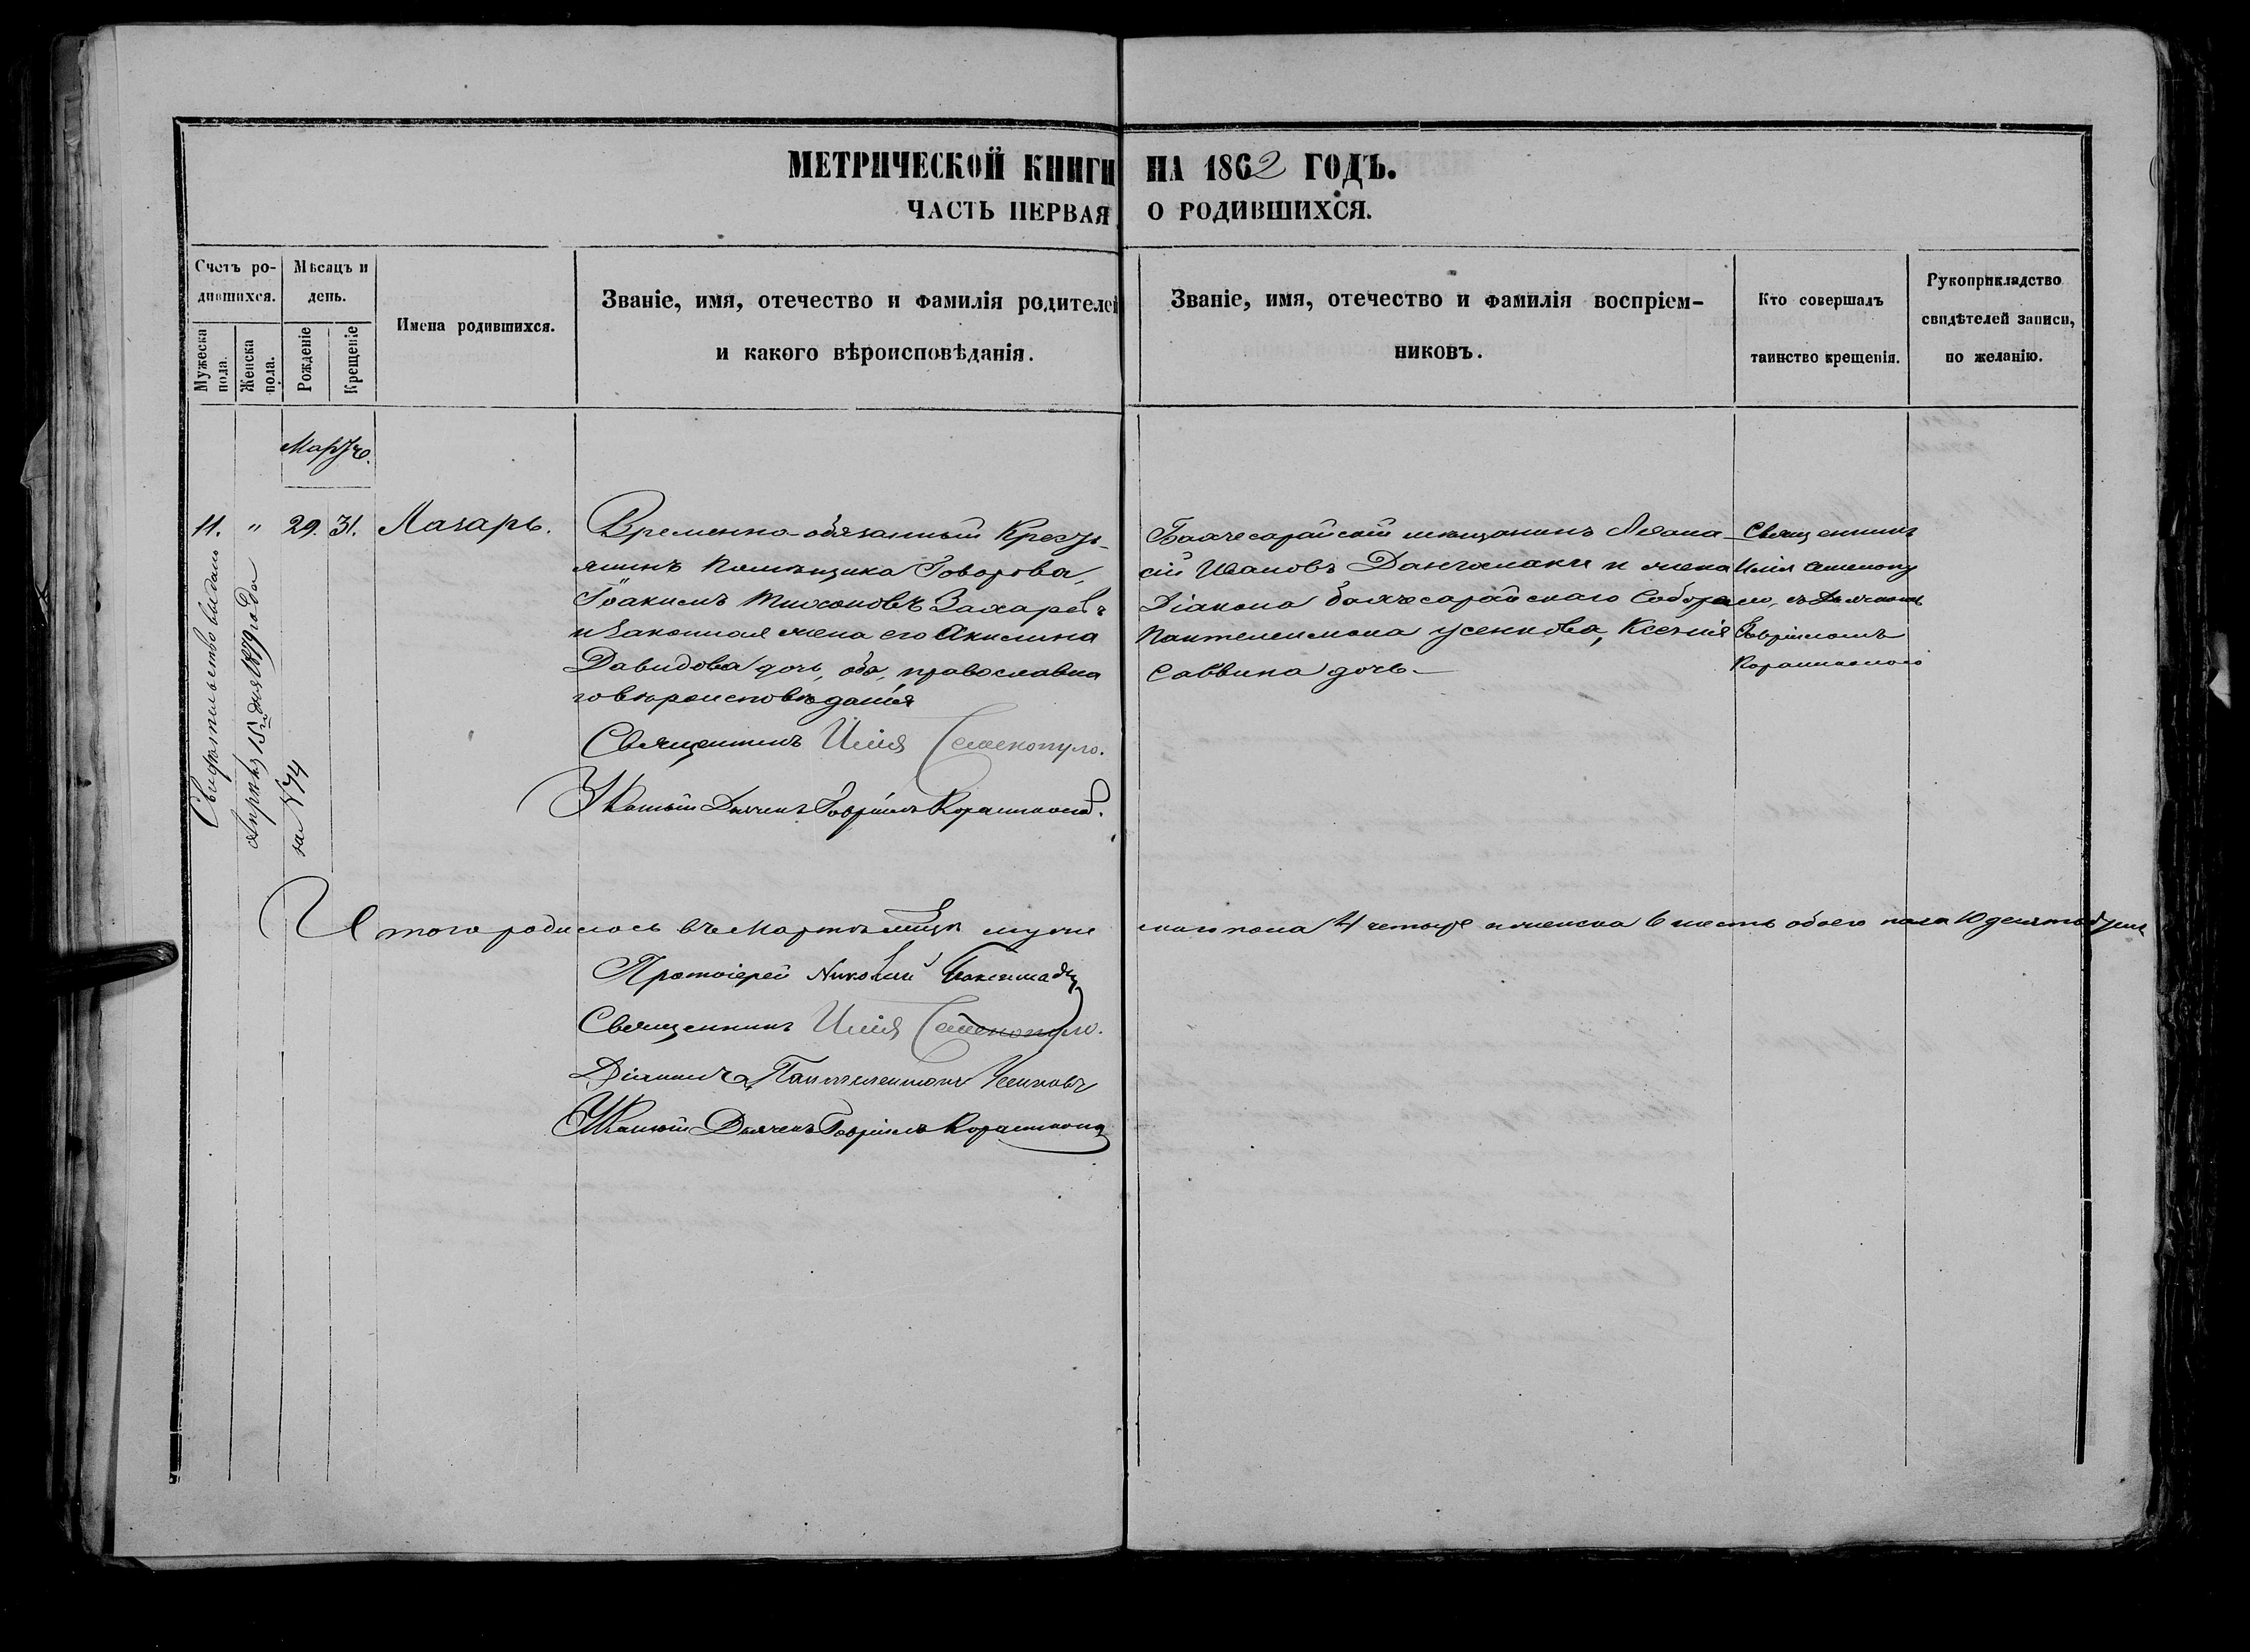 МЕТРИЧЕСКОЙ КНИГИ НА 1862 ГОДЪ.
ЧАСТЬ ПЕРВАЯ О РОДИВШИХСЯ.
Счетъ ро-
дившихся.
Мужеска пола.
Женска пола.
Мѣсяцъ и
день.
Рожденіе
Крещеніе
Имена родившихся.
Званіе, имя, отечество и фамилія родителей
и какого вѣроисповѣданія.
Званіе, имя, отечество и фамилія воспріем-
никовъ.
Кто совершалъ
таинство крещенія.
Рукоприкладство
свидѣтелей записи,
по желанію.
Мартъ.
11. " 29. 31. Лазарь.
Временно-обязанный Кресть-
янинъ Помѣщика Говорова,
Іоакимъ Тихоновъ Захаровъ
и законная жена его Акилина
Давидова дочь, оба, православна
го вѣроисповѣданія
Священникъ Илія Семенопуло.
Указный Дьячекъ Гавріилъ
Бахчесарайскій мѣщанинъ Афана
сій Ивановъ и жена
Діакона бахчесарайскаго Собора
Пантелеимона Усенкова, Ксенія
Саввина дочь.
Священникъ
Илія Семенопу
ло, съ Дьячкомъ
Гавріиломъ
Свидѣтельство выдано
Апрѣля 15 дня 1879 года
за № 74
Итого родилось въ Мартѣ мцѣ муже скаго пола 4 четыре и женска 6 шесть обоего пола 10 десять душъ
Протоіерей Николай
Священникъ Илія Семенопуло.
Діаконъ Пантелеимонъ Усенковъ
Указный Дьячекъ Гавріилъ